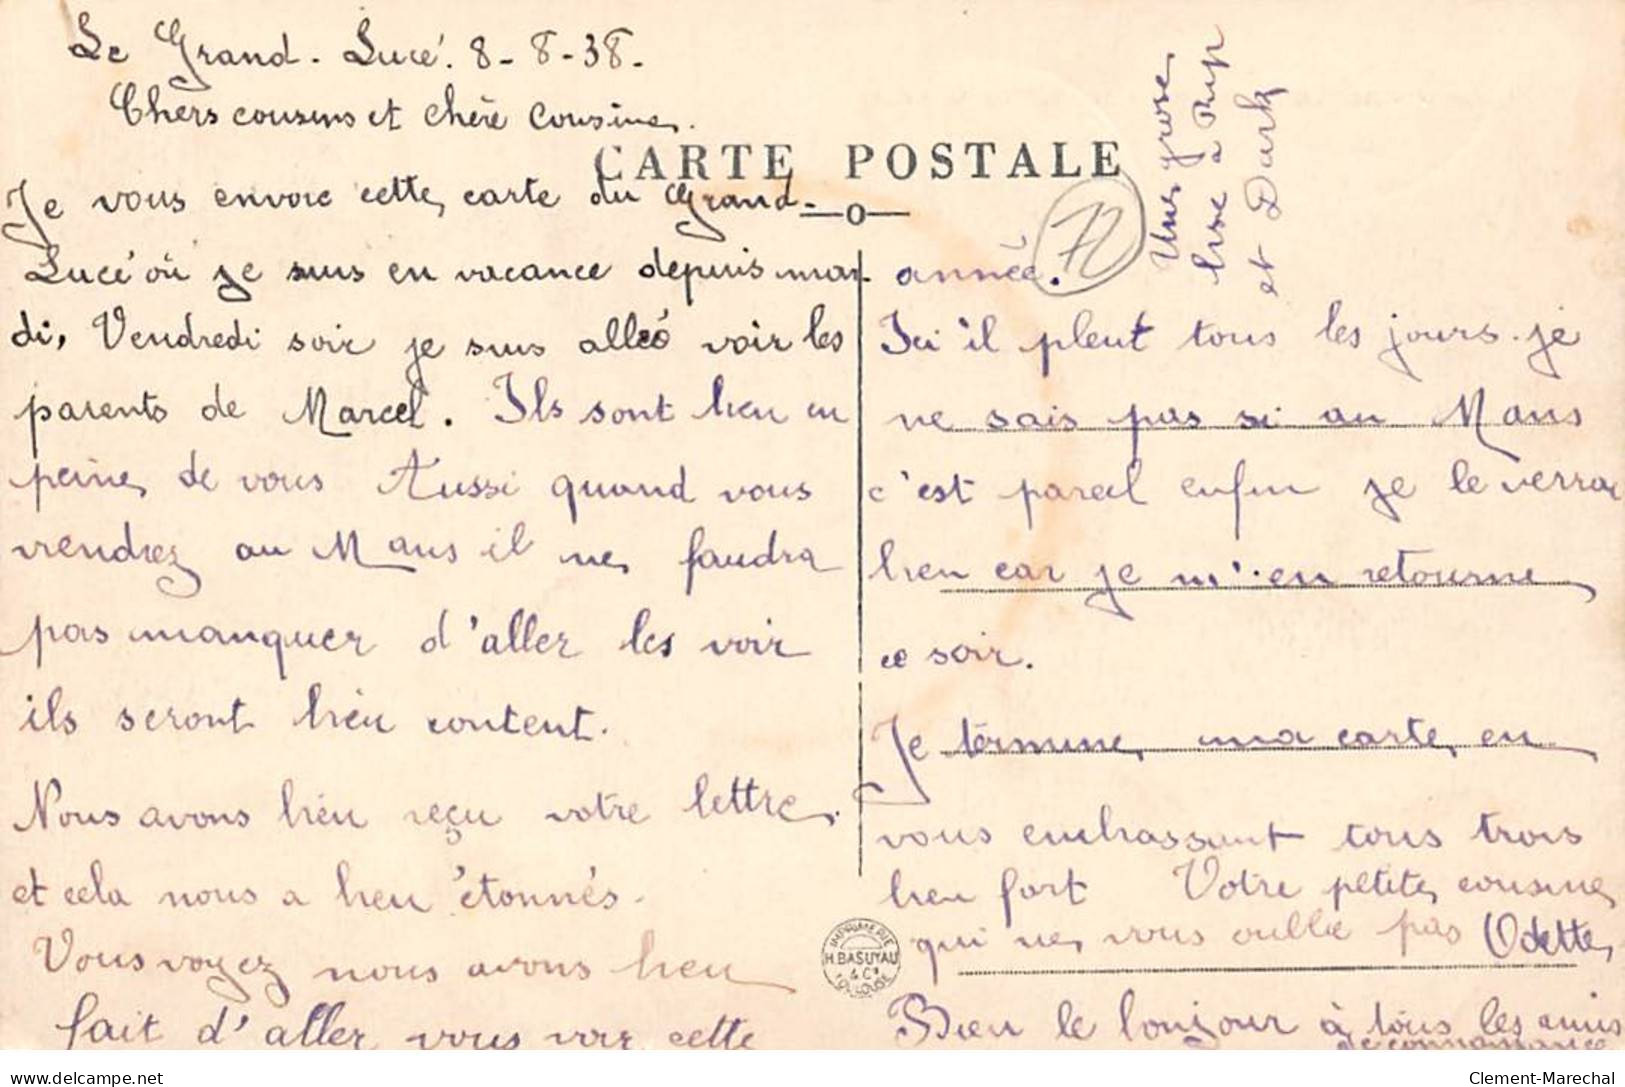 Le Grand-Lucé. 8-8-38-
Chers cousins et chère Cousine.
CARTE POSTALE
Je vous envoie cette carte du Grand-
Lucé où je suis en vacance depuis mar-
di, Vendredi soir je suis alleé voir les
parents de Marcel. Ils sont bien en
peine de vous Aussi quand vous
viendrez au Mans il ne faudra
pas manquer d'aller les voir
ils seront bien content.
Nous avons bien reçu votre lettre,
et cela nous a bien étonnés.
Vous voyez nous avons bien
fait d'aller vous voir cette
année.
Ici il pleut tous les jours. je
ne sais pas si au Mans
c'est pareil enfin je le verrai
bien car je m'en retourne
ce soir.
Je términe ma carte en
vous embrassant tous trois
bien fort Votre petite cousine
qui ne vous oublie pas Odette
Bien le bonjour à tous les amis
de connaissance
Une grosse
bise à
et
72
IMPRIMERIE
H. BASUYAU
& Cie
TOULOUSE
www.delcampe.net
Clement-Marechal